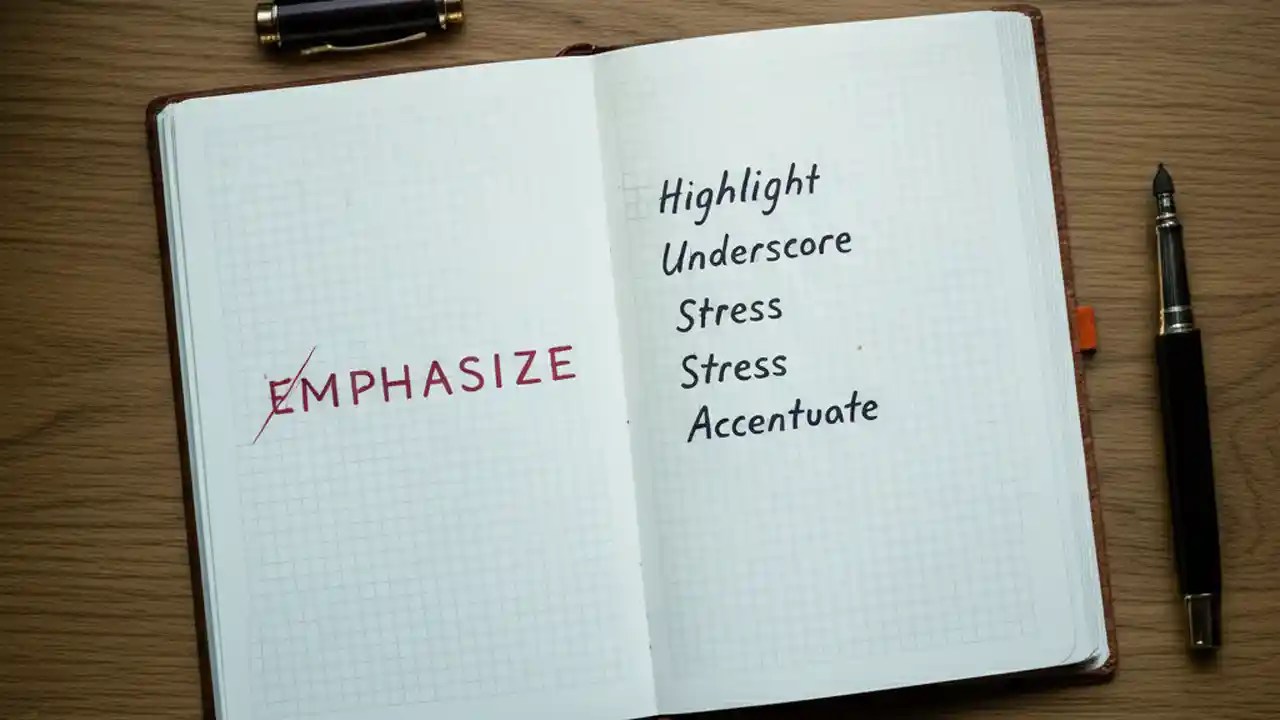 EMPHASIZE
Highlight
Underscore
Stress
Stress
Accentuate